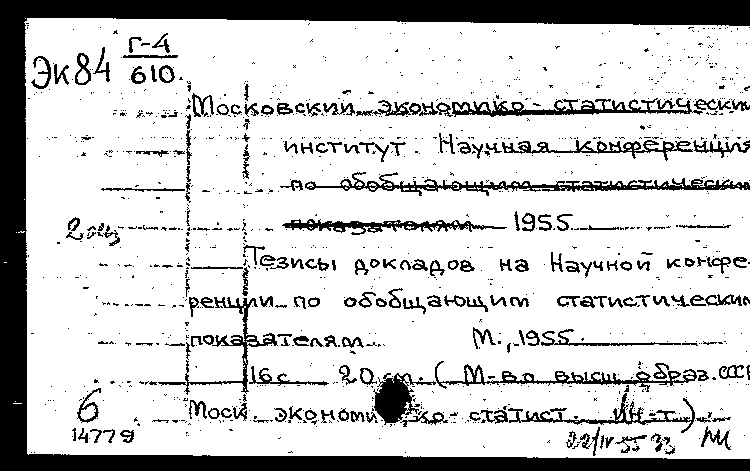 Эк84 Г-4
610.
Московский экономико-статистически
институт. Научная конференция
по обобщающим статистически
показателям 1955
2 экз
Тезисы докладов на Научной конфе-
ренции по обобщающим статистически
показателям. М., 1955.
16с 20 см. (М-во высш. образ. СССР
6 Моск. экономико-статист. ин-т).
14779 22/IV-55